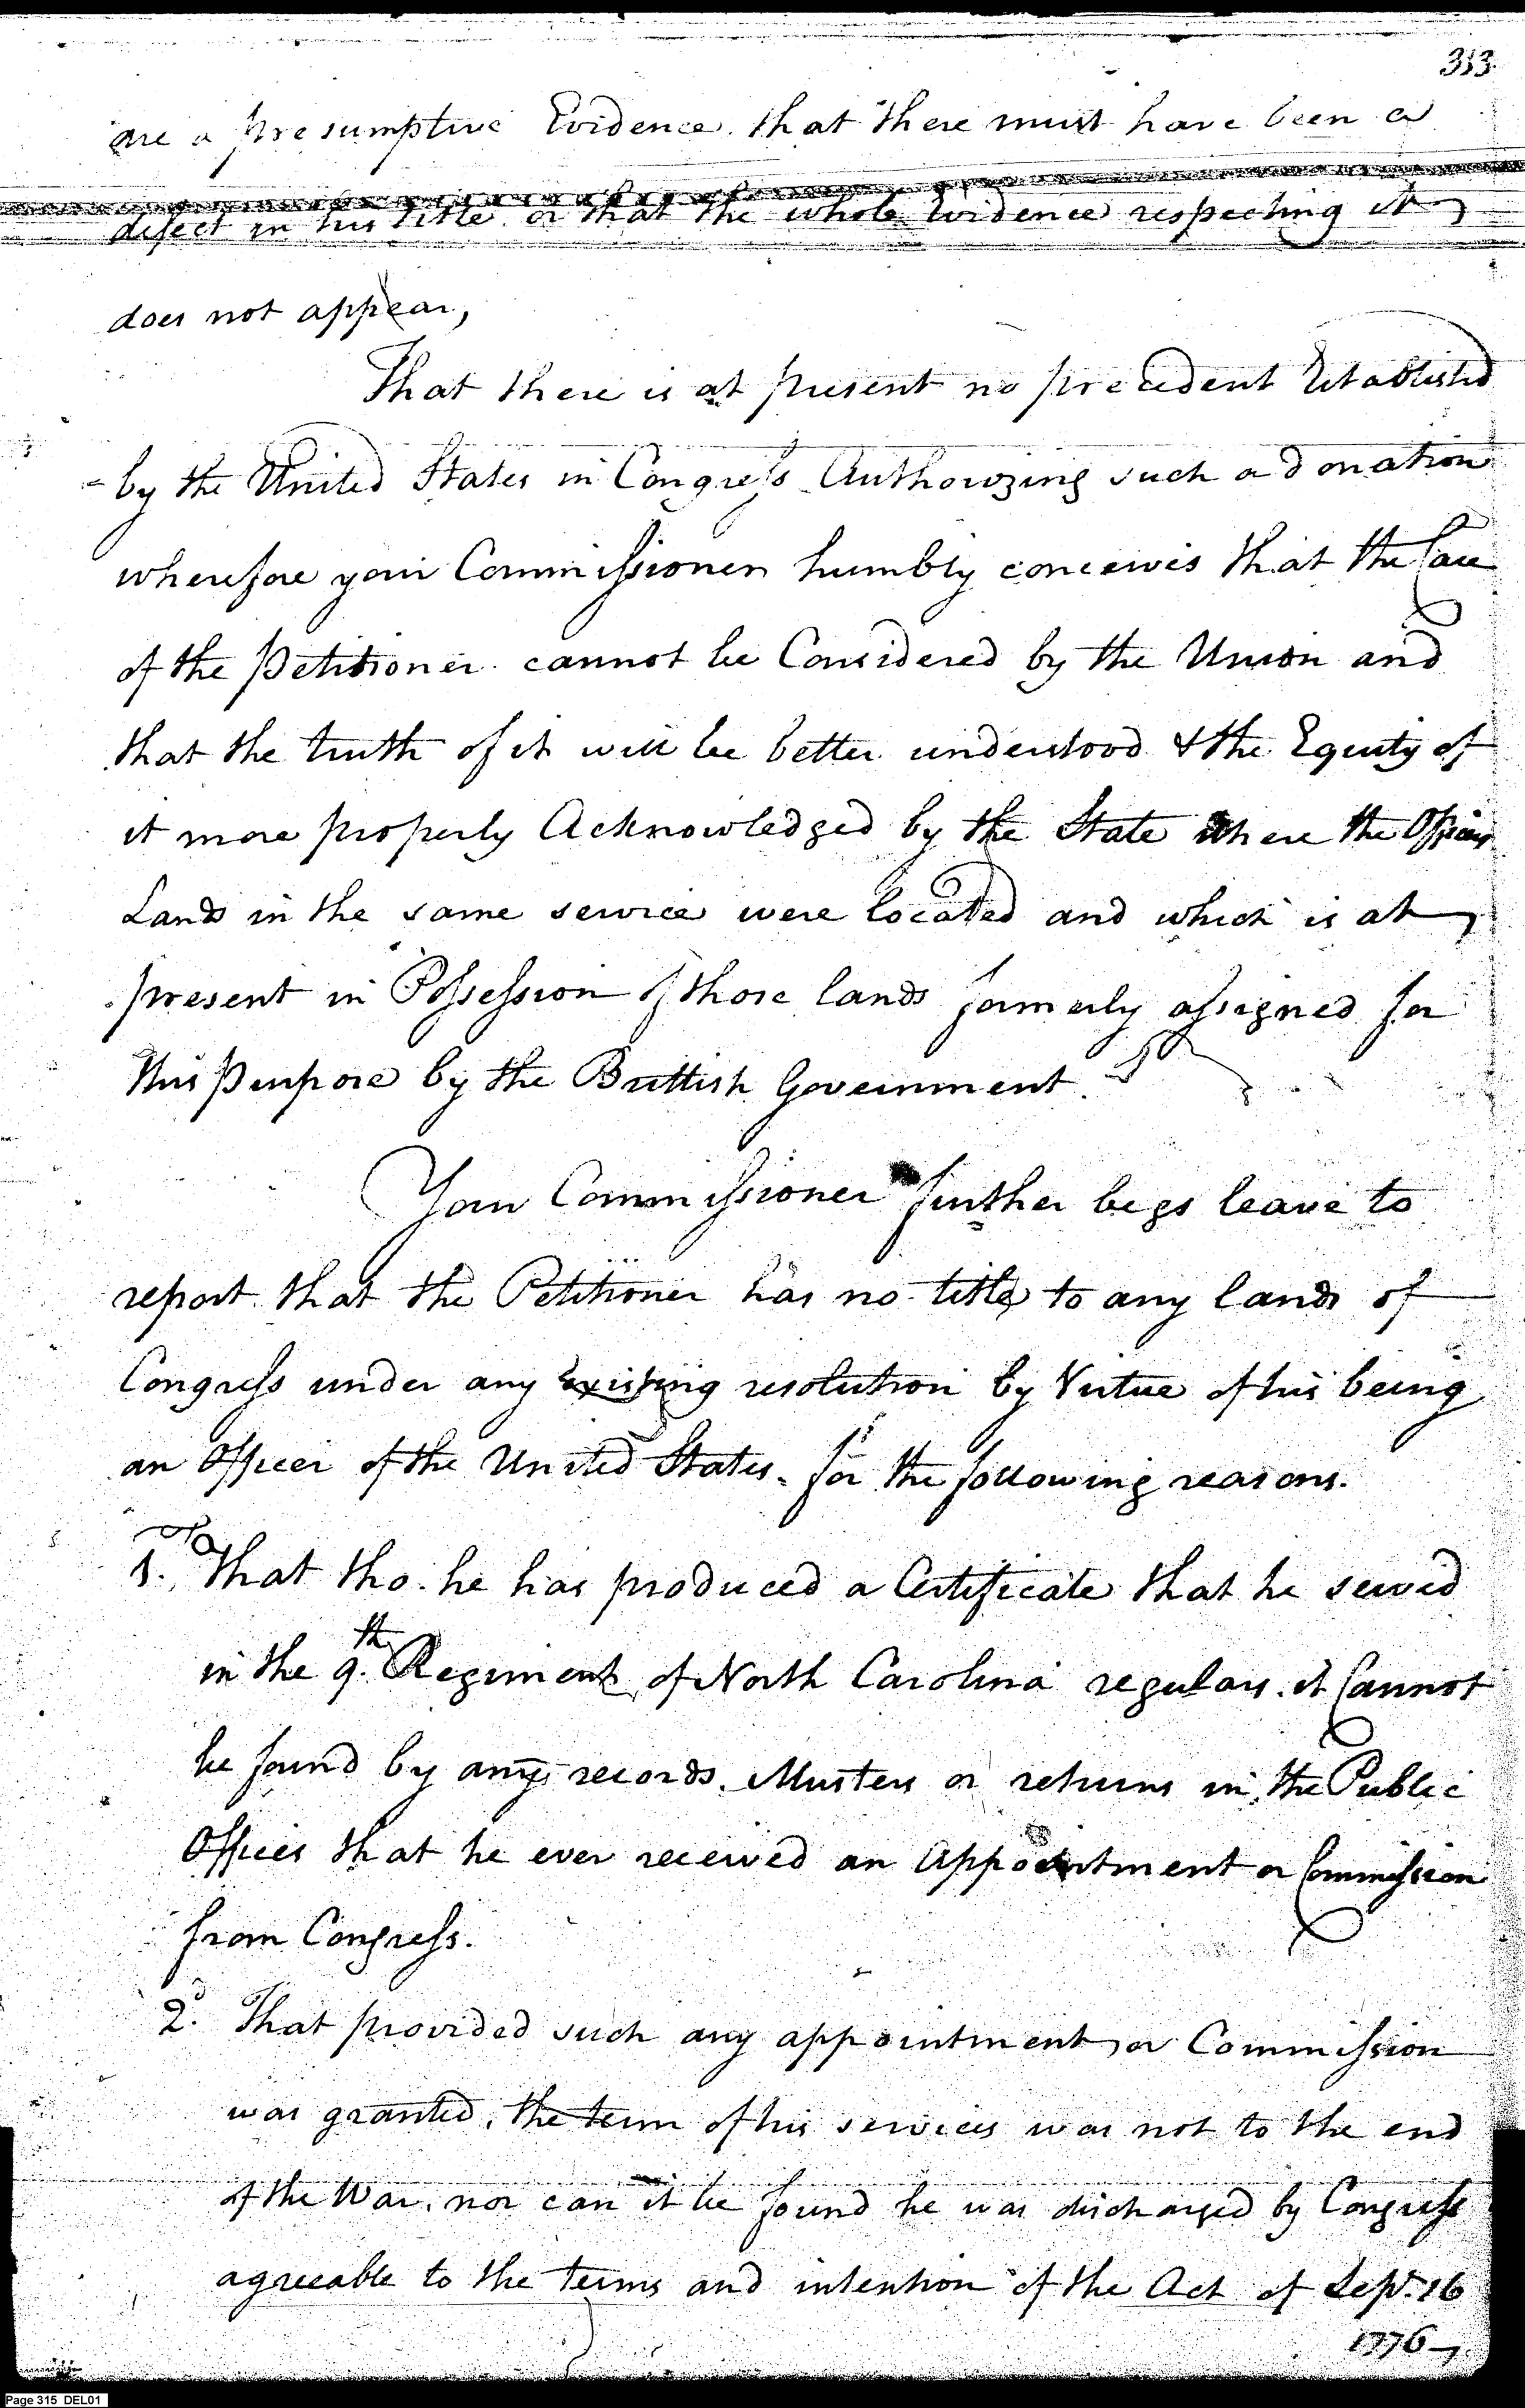 313
are a presumptive Evidence that there must have been a
defect in his title or that the whole Evidence respecting it
does not appear,
That there is at present no precedent Established
by the United States in Congress Authorizing such a donation
wherefore your Commissioner humbly conceives that the Case
of the Petitioner cannot be Considered by the Union and
that the truth of it will be better understood & the Equity of
it more properly Acknowledged by the State where the Officers
Lands in the same service were located and which is at
present in Possession of those lands formerly assigned for
this Purpose by the Brittish Government.
Your Commissioner further begs leave to
report that the Petitioner has no title to any lands of
Congress under any Existing resolution by Virtue of his being
an Officer of the United States for the following reasons.
1. That tho. he has produced a Certificate that he served
in the 9.th Regiment of North Carolina regulars. it Cannot
be found by any records. Musters or returns in the Public
Offices that he ever received an Appointment or Commission
from Congress.
2.d That provided such any appointment or Commission
was granted, the term of his services was not to the end
of the War, nor can it be found he was discharged by Congress
agreeable to the terms and intention of the Act of Sept. 16
1776
Page 315 DEL01